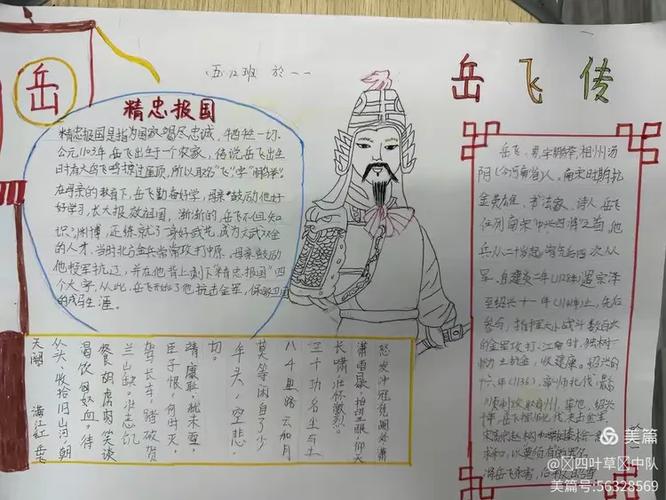 岳飞传
五12班
岳
精忠报国
精忠报国是指为国家竭尽忠诚，牺牲一切。
公元1103年，岳飞出生于一个农家，传说岳飞出生
时有大鸟飞鸣掠过屋顶，所以取名"飞"，字"鹏举"。
在母亲的教育下，岳飞勤奋好学，母亲鼓励他好
好学习，长大报效祖国，渐渐的，岳飞不但知
识渊博，还练就了一身好武艺，成为文武双全
的人才，当时北方金兵常常攻打中原，母亲鼓励
他
军抗辽，并在他背上刺下"精忠报国"四
个大字，从此，岳飞开始了他抗击金军，保家卫国
的戎马生涯。
怒发冲冠凭阑处潇
潇雨歇，抬望眼，仰天
长啸，壮怀激烈。
三十功名尘与土
八千里路云和月
莫等闲白了少
年头，空悲
切。
靖康耻，犹未雪，
臣子恨，何时灭，
驾长车，踏破贺
兰山缺。壮志饥
餐胡虏肉，笑谈
渴饮匈奴血。待
从头，收拾旧山河，朝
天阙。
满江红
岳飞，男，字鹏举，相州汤
阴（今河南省）人，南宋时期抗
金英雄、书法家、诗人，岳飞
位列南宋"中兴四将"之首，他
军，自建炎二年（1128年）遇宗泽
至绍兴十一年（1141年）止，先后
参与、指挥大小战斗数百次
美篇
@四叶草中队
美篇号:56328569